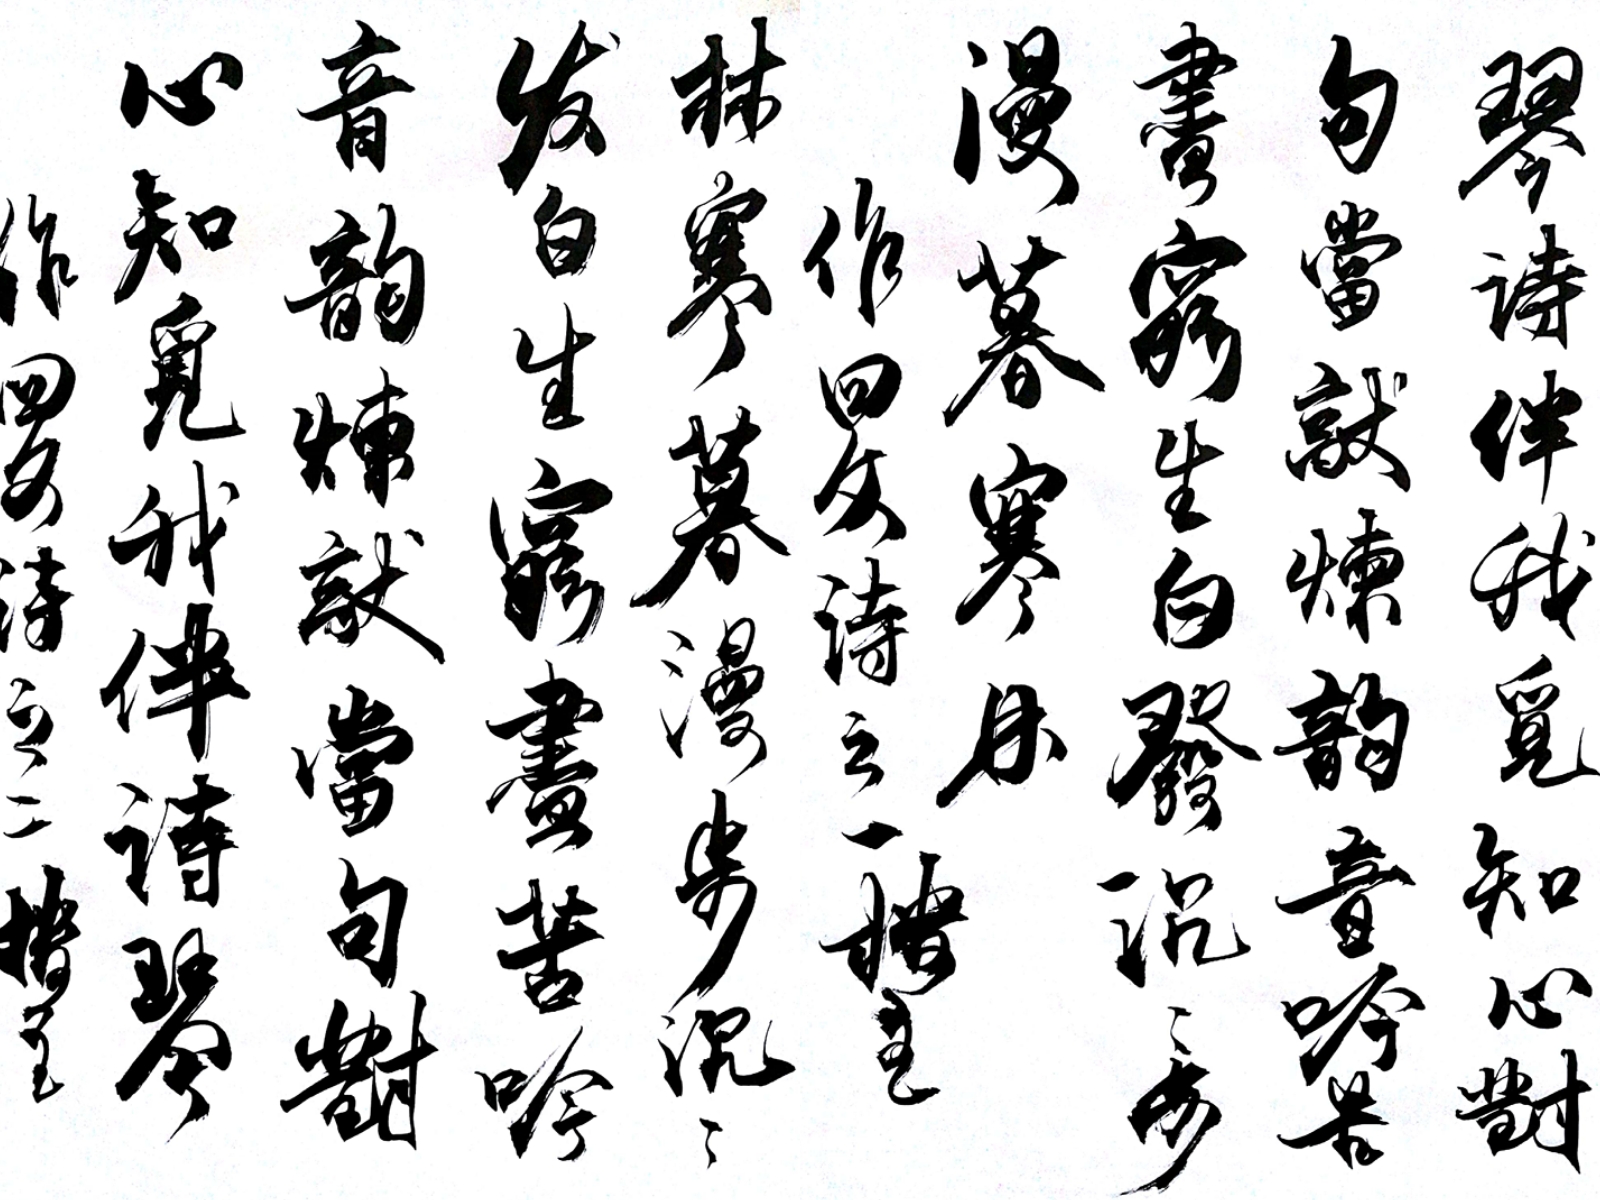 琴诗伴我觅知心對
句當就煉韵音吟苦
盡窮生白發沉〻步
漫暮寒林
作回文诗之一
林寒暮漫步沉〻
发白生窮盡苦吟
音韵煉就當句對
心知觅我伴诗琴
作回文诗之二